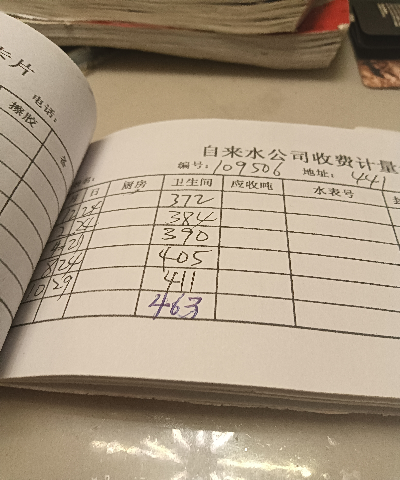 卡片
电话:
擦胶
自来水公司收费计量
编号: 109506 地址: 441
日 厨房 卫生间 应收吨 水表号
24 372
24 384
390
8 24 405
10 29 411
463